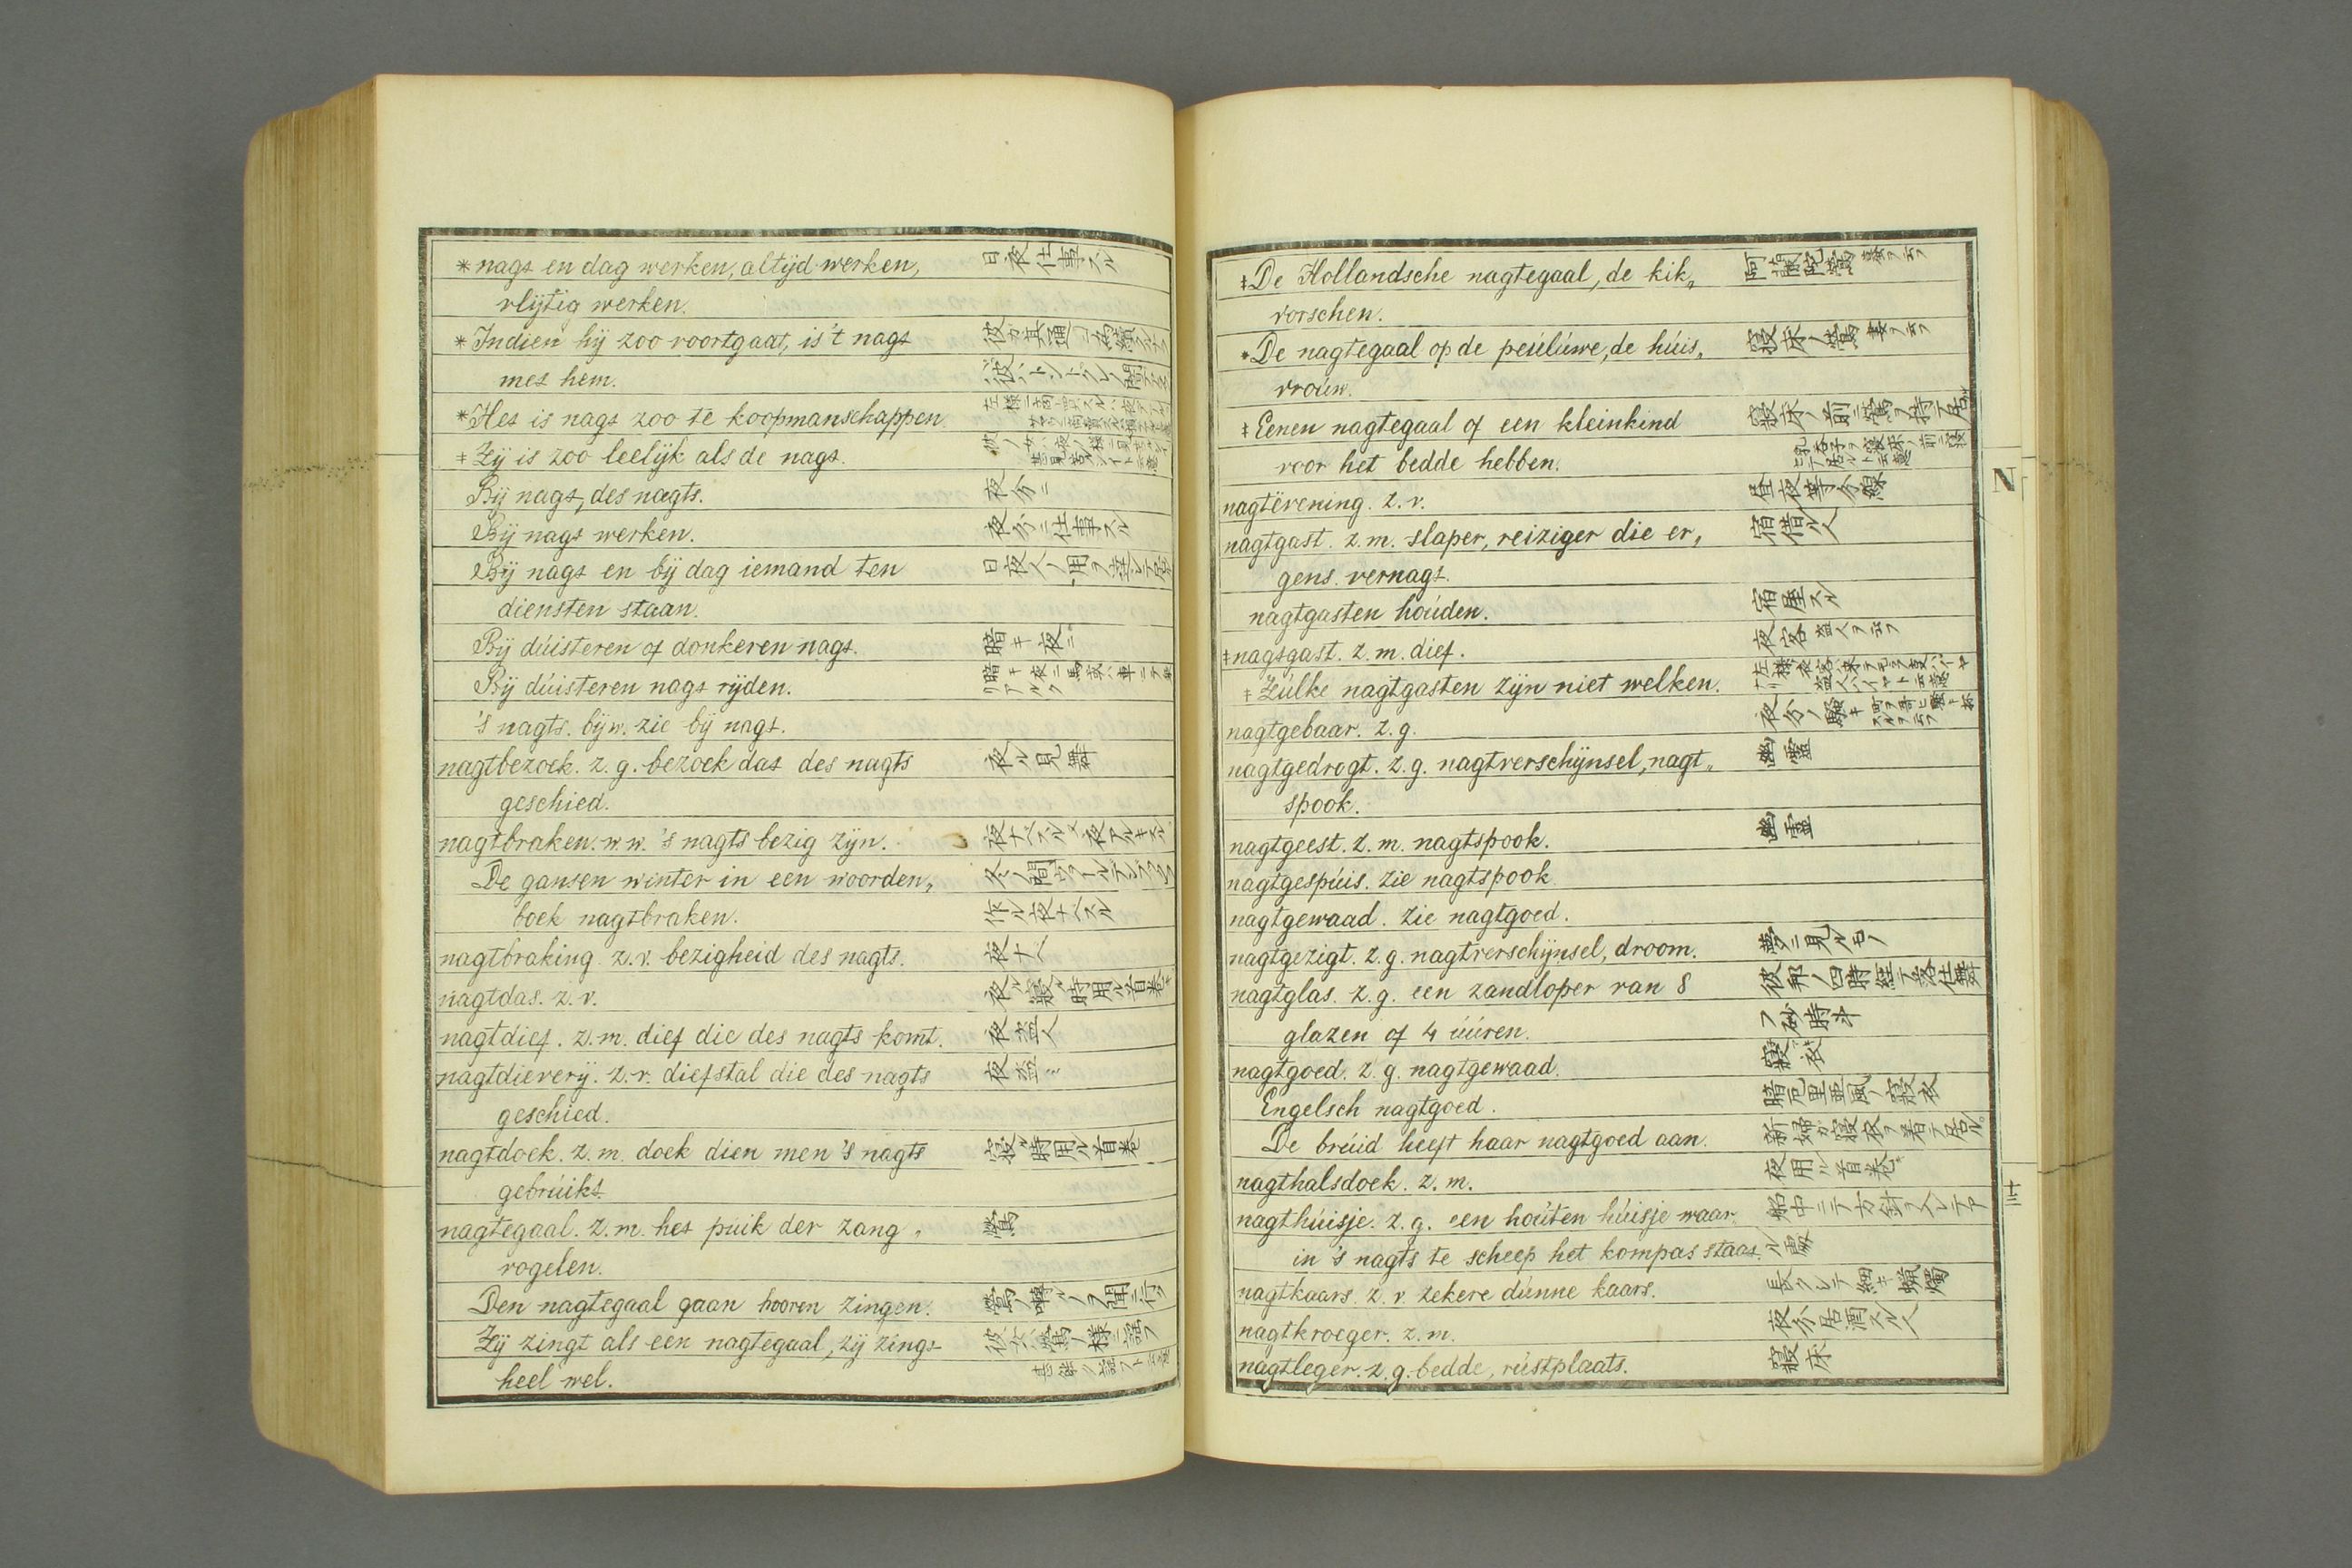 *nagt en dag werken, altijd werken, 日夜仕事スル
vlijtig werken.
*Indien hij zoo voortgaat, is 't nagt
met hem.
*Het is nagt zoo te koopmanschappen
‡Zij is zoo leelijk als de nagt.
Bij nagt, des nagts. 夜分ニ
Bij nagt werken. 夜分ニ仕事スル
Bij nagt en bij dag iemand ten 日夜人ノ用ヲ
diensten staan.
Bij dúisteren of donkeren nagt. 暗キ夜ニ
Bij dúisteren nagt rijden. 暗キ夜ニ馬
's nagts. bijw. zie bij nagt.
nagtbezoek. z. g. bezoek dat des nagts 夜ル見舞
geschied.
nagtbraken. w. w. 's nagts bezig zijn.
De gansen winter in een woorden„
boek nagtbraken. 作ル夜ナベスル
nagtbraking. z. v. bezigheid des nagts. 夜ナベ
nagtdas. z. v. 夜ル寝ル時用ル首巻
nagtdief. z. m. dief die des nagts komt. 夜盗人
nagtdieverij. z. v. diefstal die des nagts 夜盗ミ
geschied.
nagtdoek. z. m. doek dien men 's nagts 寝ル時用ル首巻
gebrúikt.
nagtegaal. z. m. het puik der zang„ 鶯
vogelen.
Den nagtegaal gaan hooren zingen. 鶯ノ囀ルヲ聞ニ行ク
Zij zingt als een nagtegaal, zij zingt 彼女ハ鶯ノ様ニ謡フ
heel wel.
‡De Hollandsche nagtegaal, de kik„ 阿蘭陀鶯
vorschen.
*De nagtegaal op de peúlúwe, de húis„ 寝床ノ鶯 妻ヲ云フ
vroúw.
‡Eenen nagtegaal of een kleinkind 寝床ノ前ニ鶯ヲ持テ居ル
voor het bedde hebben.
nagtëvening. z. v. 昼夜等分線
nagtgast. z. m. slaper, reiziger die er„ 宿借ル人
gens. vernagt.
nagtgasten hoúden. 宿屋スル
‡nagtgast. z. m. dief. 夜客 盗人ヲ云フ
‡Zúlke nagtgasten zijn niet welken.
nagtgebaar. z. g. 夜分ノ騒キ
nagtgedrogt. z. g. nagtverschijnsel, nagt„ 幽霊
spook.
nagtgeest. z. m. nagtspook. 幽霊
nagtgespúis. zie nagtspook
nagtgewaad. zie nagtgoed.
nagtgezigt. z. g. nagtverschijnsel, droom. 夢ニ見ルモノ
nagtglas. z. g. een zandloper van 8 彼邦ノ四時経テ落仕舞
glazen of 4 úúren. フ砂時斗
nagtgoed. z. g. nagtgewaad. 寝衣
Engelsch nagtgoed. 諳厄里亜風ノ寝衣
De brúid heeft haar nagtgoed aan. 新婦ガ寝衣ヲ着テ居ル
nagthalsdoek. z. m. 夜用ル首巻
nagthúisje. z. g. een hoúten húisje waar 船中ニテ方針ヲ入レテア
in 's nagts te scheep het kompas staat. ル處
nagtkaars. z. v. zekere dúnne kaars. 長クシテ細キ蝋燭
nagtkroeger. z. m. 夜分居酒スル人
nagtleger. z. g. bedde, rústplaats. 寝床
N